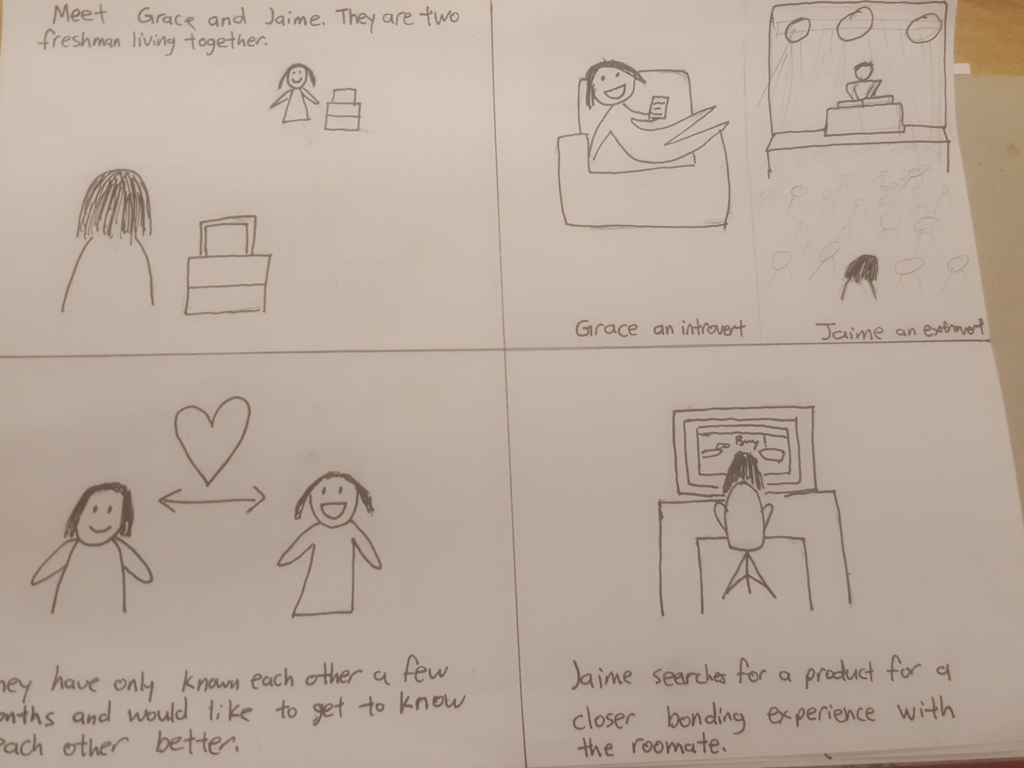 Meet Grace and Jaime. They are two
freshman living together.
Grace an introvert
Jaime an extrovert
hey have only known each other a few
onths and would like to get to know
each other better.
Jaime searches for a product for a
closer bonding experience with
the roomate.